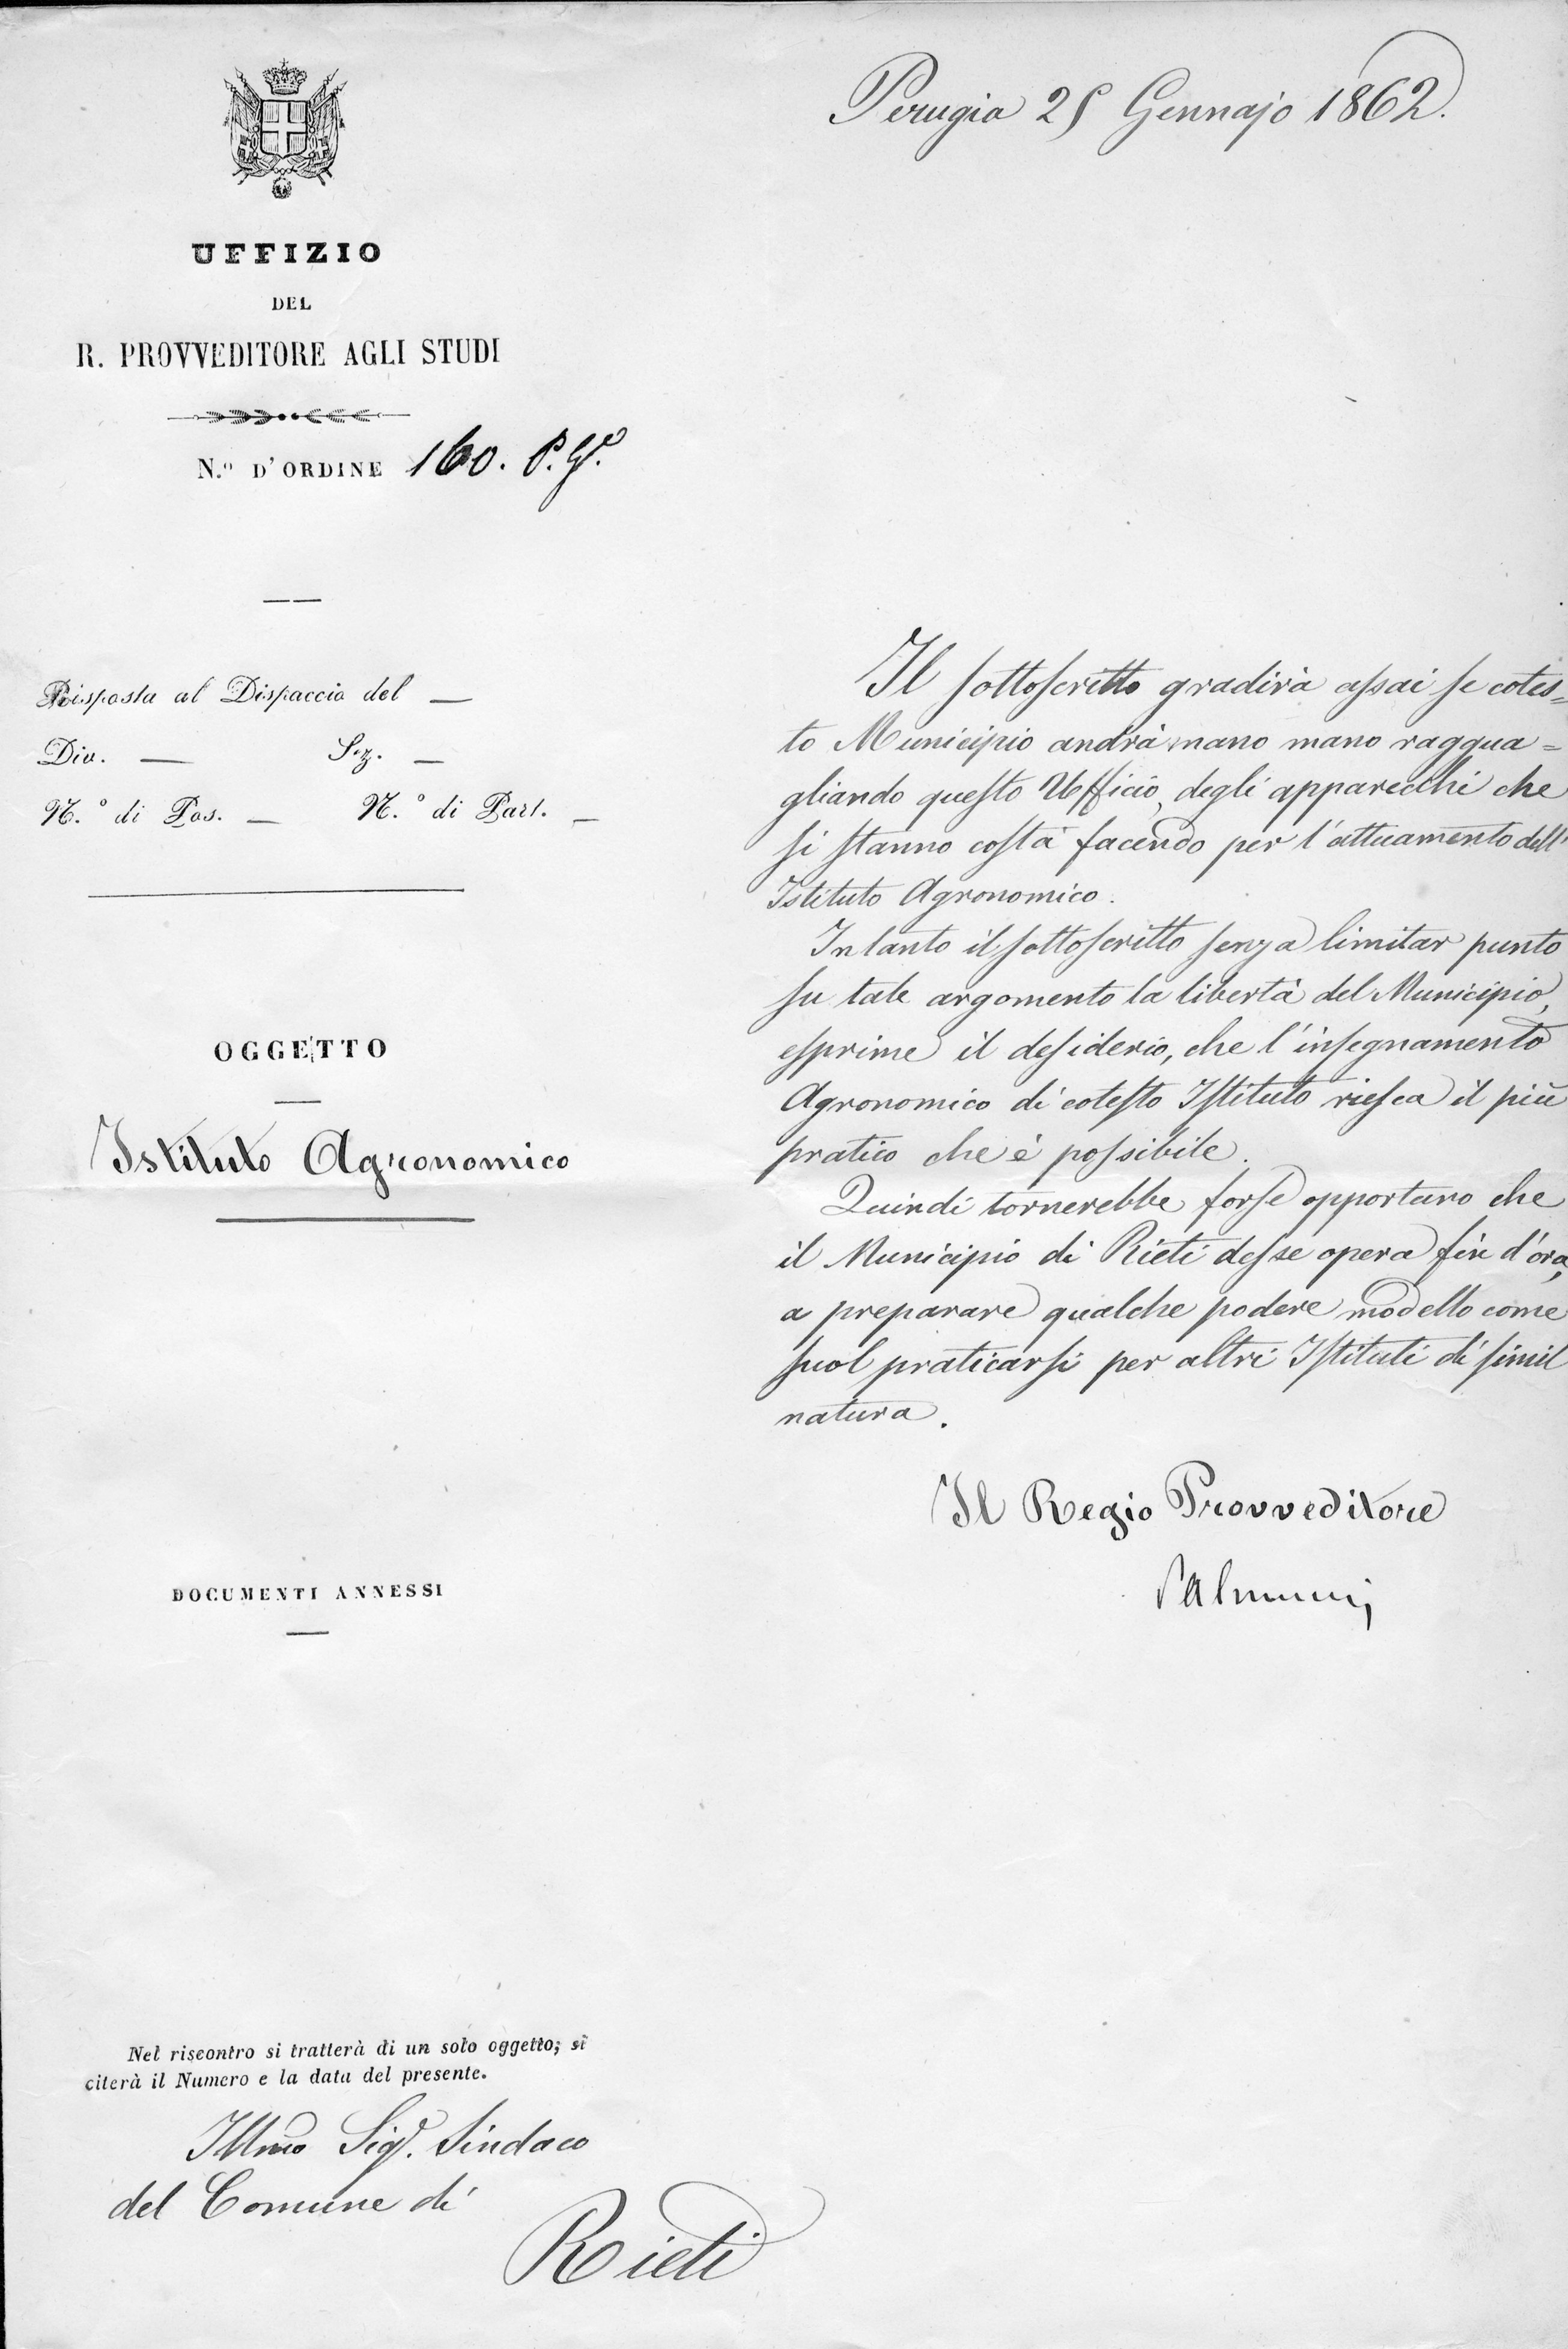 Perugia 25 Gennajo 1862.
UFFIZIO
DEL
R. PROVVEDITORE AGLI STUDI
N.º D'ORDINE 160. P. Gle.
Risposta al Dispaccio del —
Div. — Sez. —
N.º di Pos. — N.º di Part. —
OGGETTO
Istituto Agronomico
DOCUMENTI ANNESSI
Il sottoscritto gradirà assai se cotes=
to Municipio andrà mano mano raggua=
gliando questo Ufficio, degli apparecchi che
si stanno costà facendo per l'attuamento dell'
Istituto Agronomico.
Intanto il sottoscritto senza limitar punto
su tale argomento la libertà del Municipio,
esprime il desiderio, che l'insegnamento
Agronomico di cotesto Istituto riesca il più
pratico che è possibile.
Quindi tornerebbe forse opportuno che
il Municipio di Rieti desse opera fin d'ora,
a preparare qualche podere modello come
suol praticarsi per altri Istituti di simil
natura.
Il Regio Provveditore
Nel riscontro si tratterà di un solo oggetto; si
citerà il Numero e la data del presente.
Illmo Sigr. Sindaco
del Comune di
Rieti